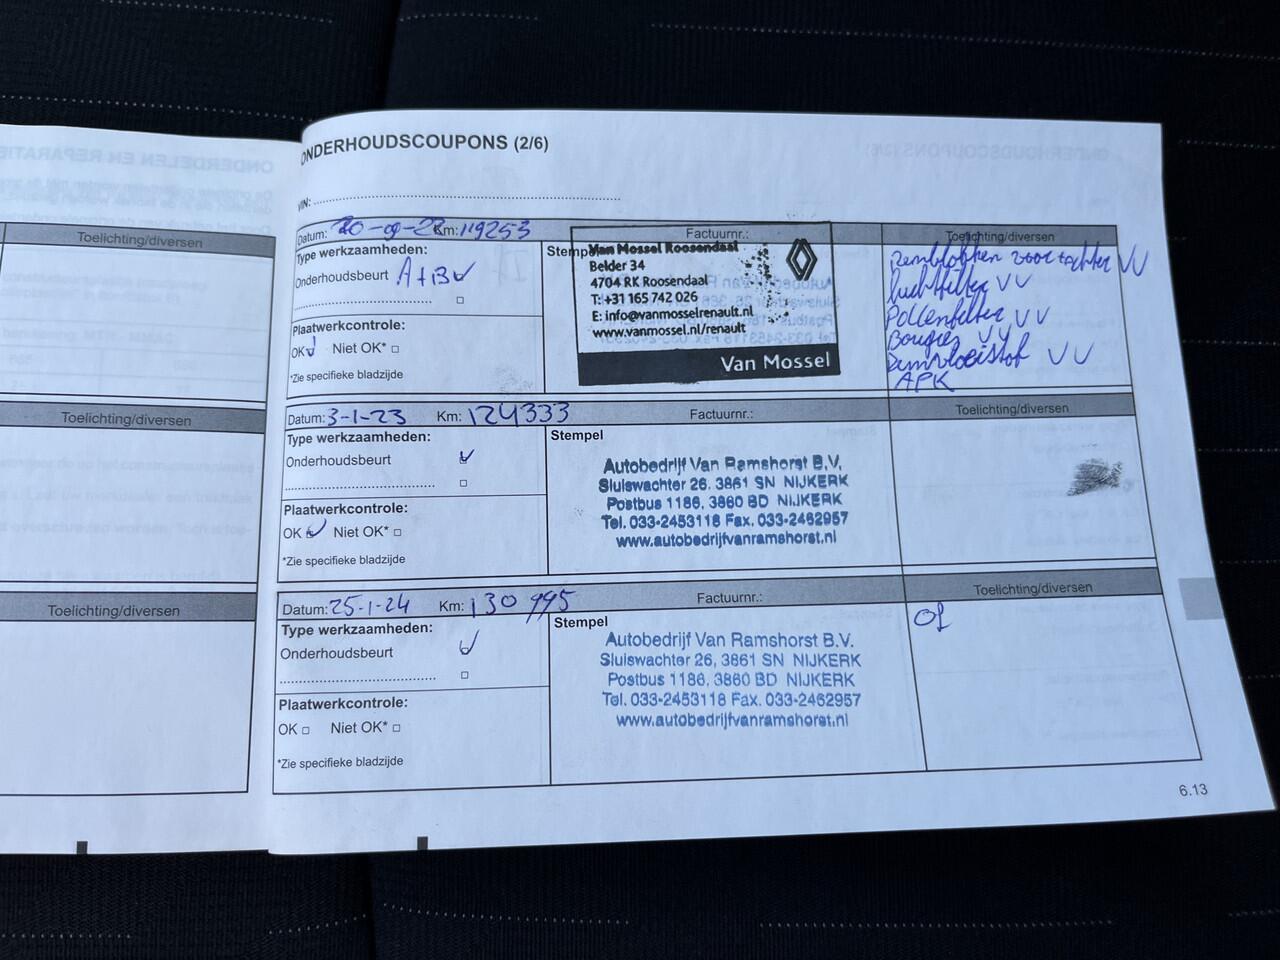 ONDERHOUDSCOUPONS (2/6)
VIN:
Toelichting/diversen
Datum: Km: 119253 Factuurnr.: Toelichting/diversen
Type werkzaamheden:
Onderhoudsbeurt A+B
Plaatwerkcontrole:
OK Niet OK*
*Zie specifieke bladzijde
Stempel
Van Mossel Roosendaal
Belder 34
4704 RK Roosendaal
T: +31 165 742 026
E: info@vanmosselrenault.nl
www.vanmossel.nl/renault
Van Mossel
Remblokken voor + achter VV
Luchtfilter VV
Pollenfilter VV
Bougies VV
Remvloeistof VV
APK
Toelichting/diversen
Datum: 3-1-23 Km: 124333 Factuurnr.: Toelichting/diversen
Type werkzaamheden:
Onderhoudsbeurt
Plaatwerkcontrole:
OK Niet OK*
*Zie specifieke bladzijde
Stempel
Autobedrijf Van Ramshorst B.V.
Sluiswachter 26, 3861 SN NIJKERK
Postbus 1186, 3860 BD NIJKERK
Tel. 033-2453118 Fax. 033-2462957
www.autobedrijfvanramshorst.nl
Toelichting/diversen
Datum: 25-1-24 Km: 130995 Factuurnr.: Toelichting/diversen
Type werkzaamheden:
Onderhoudsbeurt
Plaatwerkcontrole:
OK Niet OK*
*Zie specifieke bladzijde
Stempel
Autobedrijf Van Ramshorst B.V.
Sluiswachter 26, 3861 SN NIJKERK
Postbus 1186, 3860 BD NIJKERK
Tel. 033-2453118 Fax. 033-2462957
www.autobedrijfvanramshorst.nl
6.13